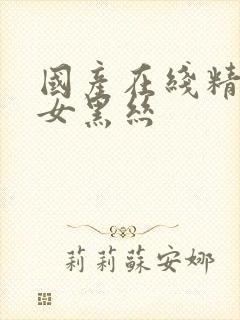 國產在綫精
女黑絲
莉莉蘇安娜